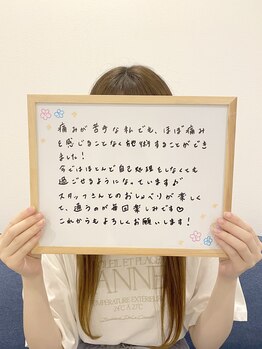 痛みが苦手な私でも、ほぼ痛み
を感じることなく施術することができ
ました！
今ではほとんど自己処理をしなくても
過ごせるようになっています♪
スタッフさんとのおしゃべりが楽しく
て、通うのが毎回楽しみです♡
これからもよろしくお願いします！
SOLEIL ET PLAGE
ANNE
TEMPÉRATURE EXTÉRIEURE
24°C À 27°C